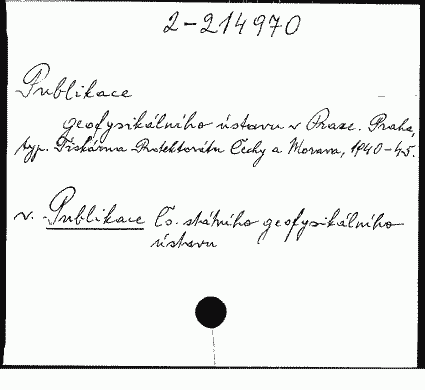 2-214970
Publikace
geofysikálního ústavu v Praze. Praha,
typ. Tiskárna Protektorátu Čechy a Morava, 1940-45.
v. Publikace Čs. státního geofysikálního
ústavu